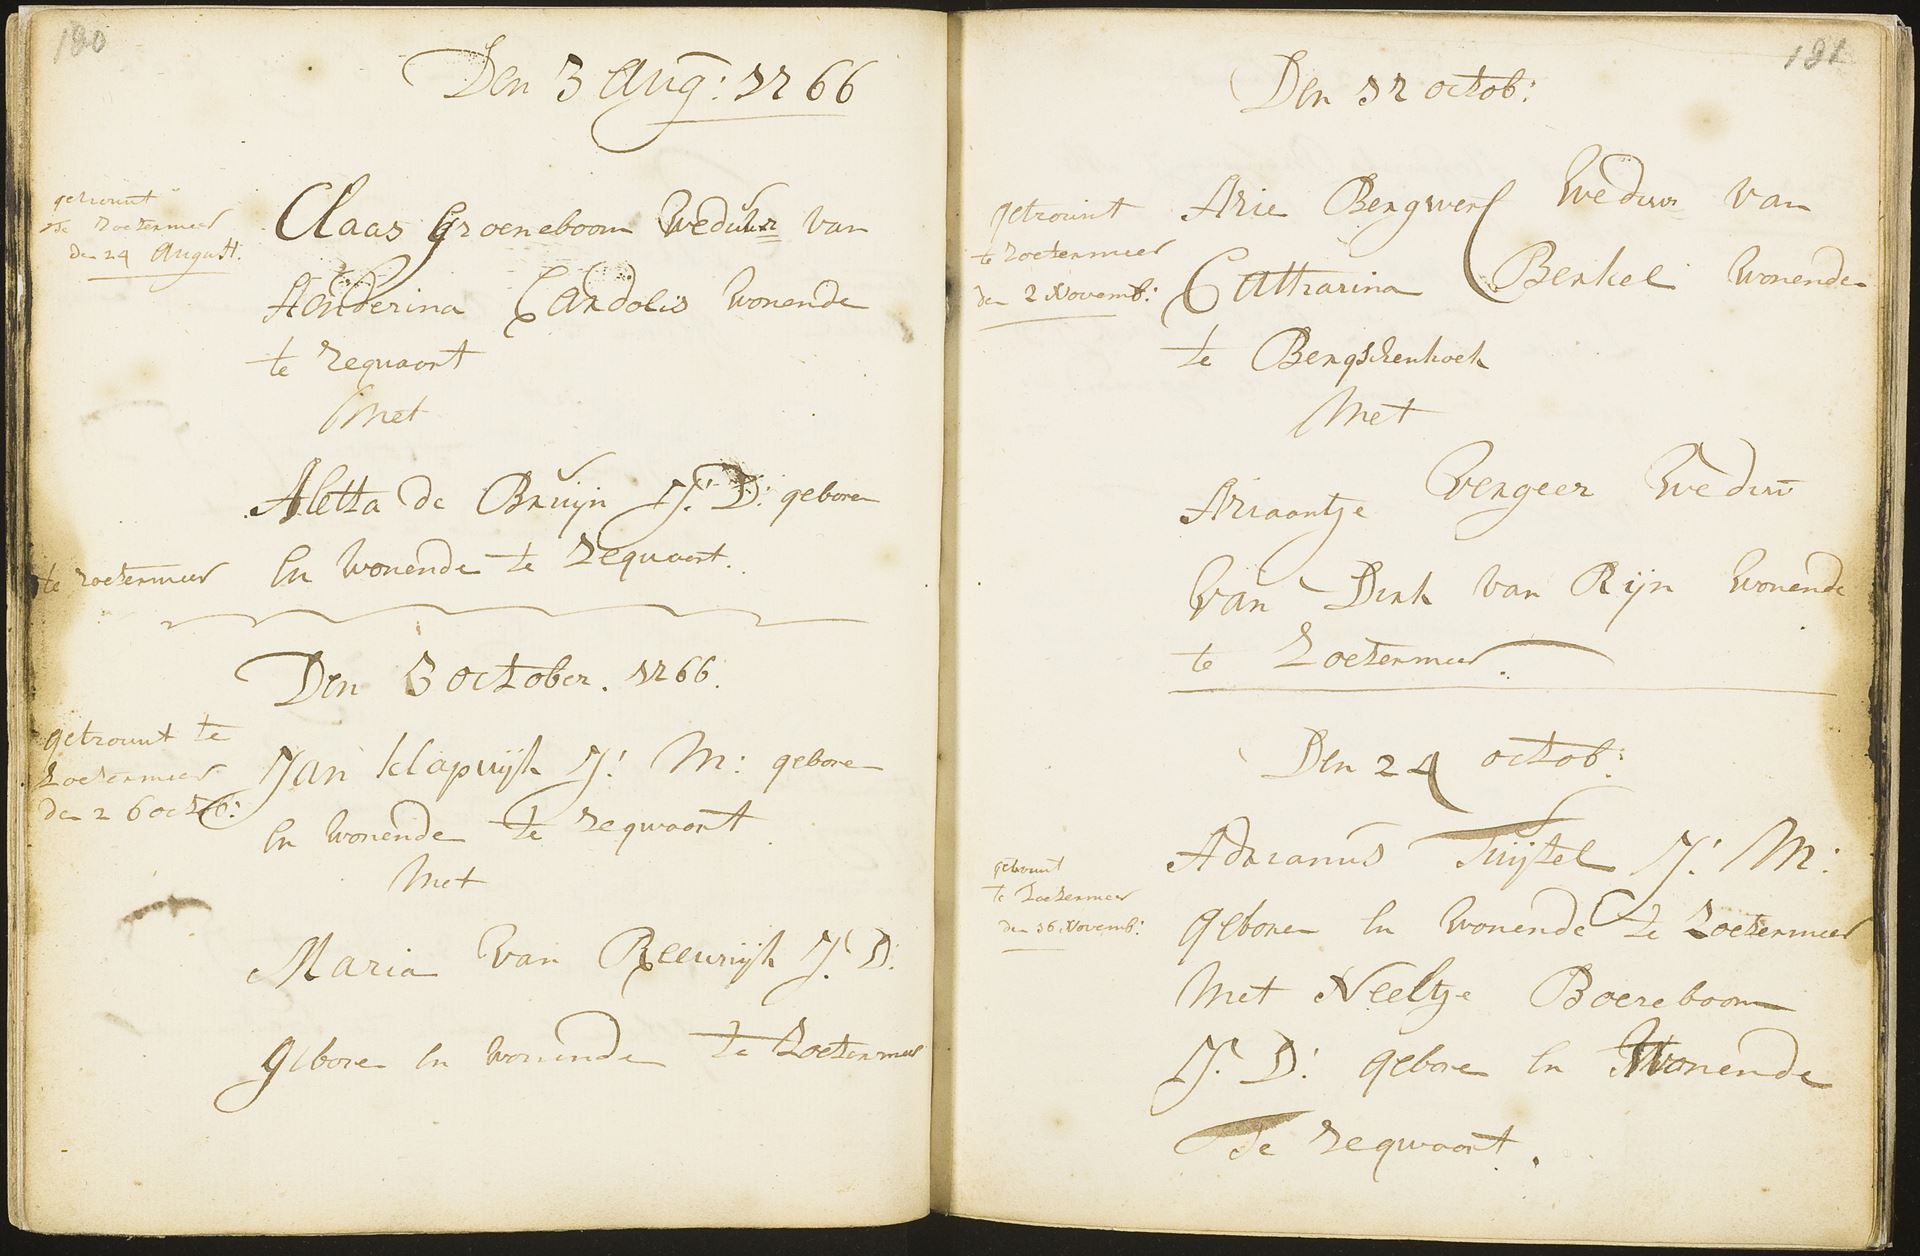 180
Den 3 Aug: 1766
getrouwt
te Zoetermeer
de 24 August:
Claas Groeneboom Weduwr van
Wonende
te Zegwaart
Met
Aletta de Bruijn J: D: geboren
te Zoetermeer
En Wonende te Zegwaart.
Den 3 October. 1766.
getrouwt te
Zoetermeer
de 26 octob:
Jan Klapwijk J: M: gebore
En Wonende te Zegwaart
Met
Maria Van Reeuwijk J: D:
gebore En Wonende te Zoetermeer
181
Den 17 octob:
getrouwt
te Zoetermeer
den 2 Novemb:
Arie Bergwerf Weduwr Van
Catharina Berkel Wonende
te Bergschenhoek
Met
Ariaantje Vergeer Weduw
Van Dirk van Rijn Wonende
te Zoetermeer.
Den 24 octob:
getrouwt
te Zoetermeer
den 16 Novemb:
Adrianus Tuijtel J: M:
geboren En Wonende te Zoetermeer
Met Neeltje Boereboom
J: D: gebore En Wonende
te Zegwaart.